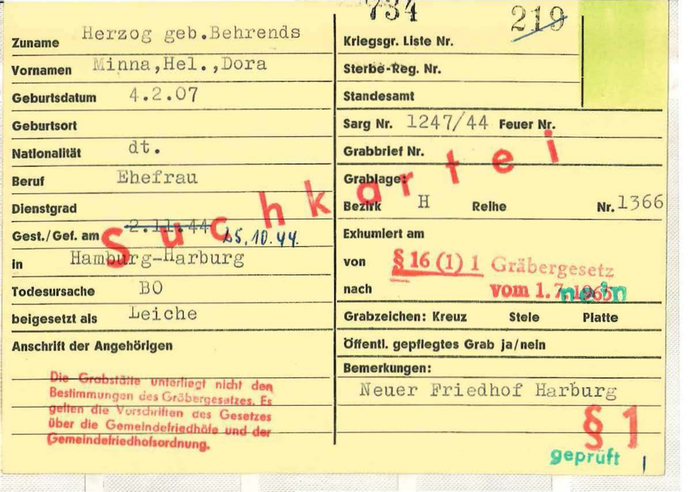 734
219
Zuname Herzog geb.Behrends
Vornamen Minna,Hel.,Dora
Geburtsdatum 4.2.07
Geburtsort
Nationalität dt.
Beruf Ehefrau
Dienstgrad
Gest./Gef. am 2.11.44 25.10.44.
in Hamburg-Harburg
Todesursache BO
beigesetzt als Leiche
Anschrift der Angehörigen
Die Grabstätte unterliegt nicht den
Bestimmungen des Gräbergesetzes. Es
gelten die Vorschriften des Gesetzes
über die Gemeindefriedhöfe und der
Gemeindefriedhofsordnung.
Suchkartei
Kriegsgr. Liste Nr.
Sterbe-Reg. Nr.
Standesamt
Sarg Nr. 1247/44 Feuer Nr.
Grabbrief Nr.
Grablage:
Bezirk H Reihe Nr. 1366
Exhumiert am
von § 16 (1) 1 Gräbergesetz
nach vom 1.7.1965 nein
Grabzeichen: Kreuz Stele Platte
Öffentl. gepflegtes Grab ja/nein
Bemerkungen:
Neuer Friedhof Harburg
§ 1
geprüft